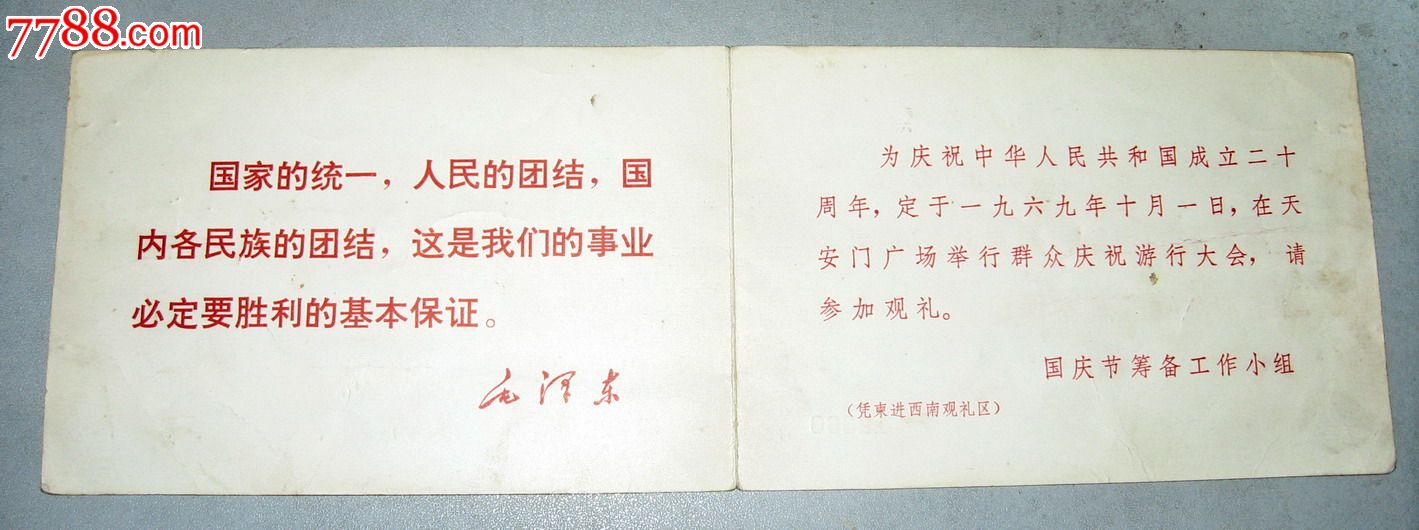 7788.com
国家的统一，人民的团结，国
内各民族的团结，这是我们的事业
必定要胜利的基本保证。
毛泽东
为庆祝中华人民共和国成立二十
周年，定于一九六九年十月一日，在天
安门广场举行群众庆祝游行大会，请
参加观礼。
国庆节筹备工作小组
（凭柬进西南观礼区）